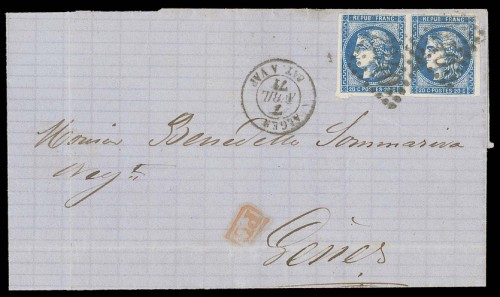 REPUB FRANC REPUB FRANC
20 C POSTES 20 C 20 C POSTES 20 C
ALGER BAT. A VAP.
AVRIL
71
Monsieur Benedetto Sommariva
Negt
PD
Gênes